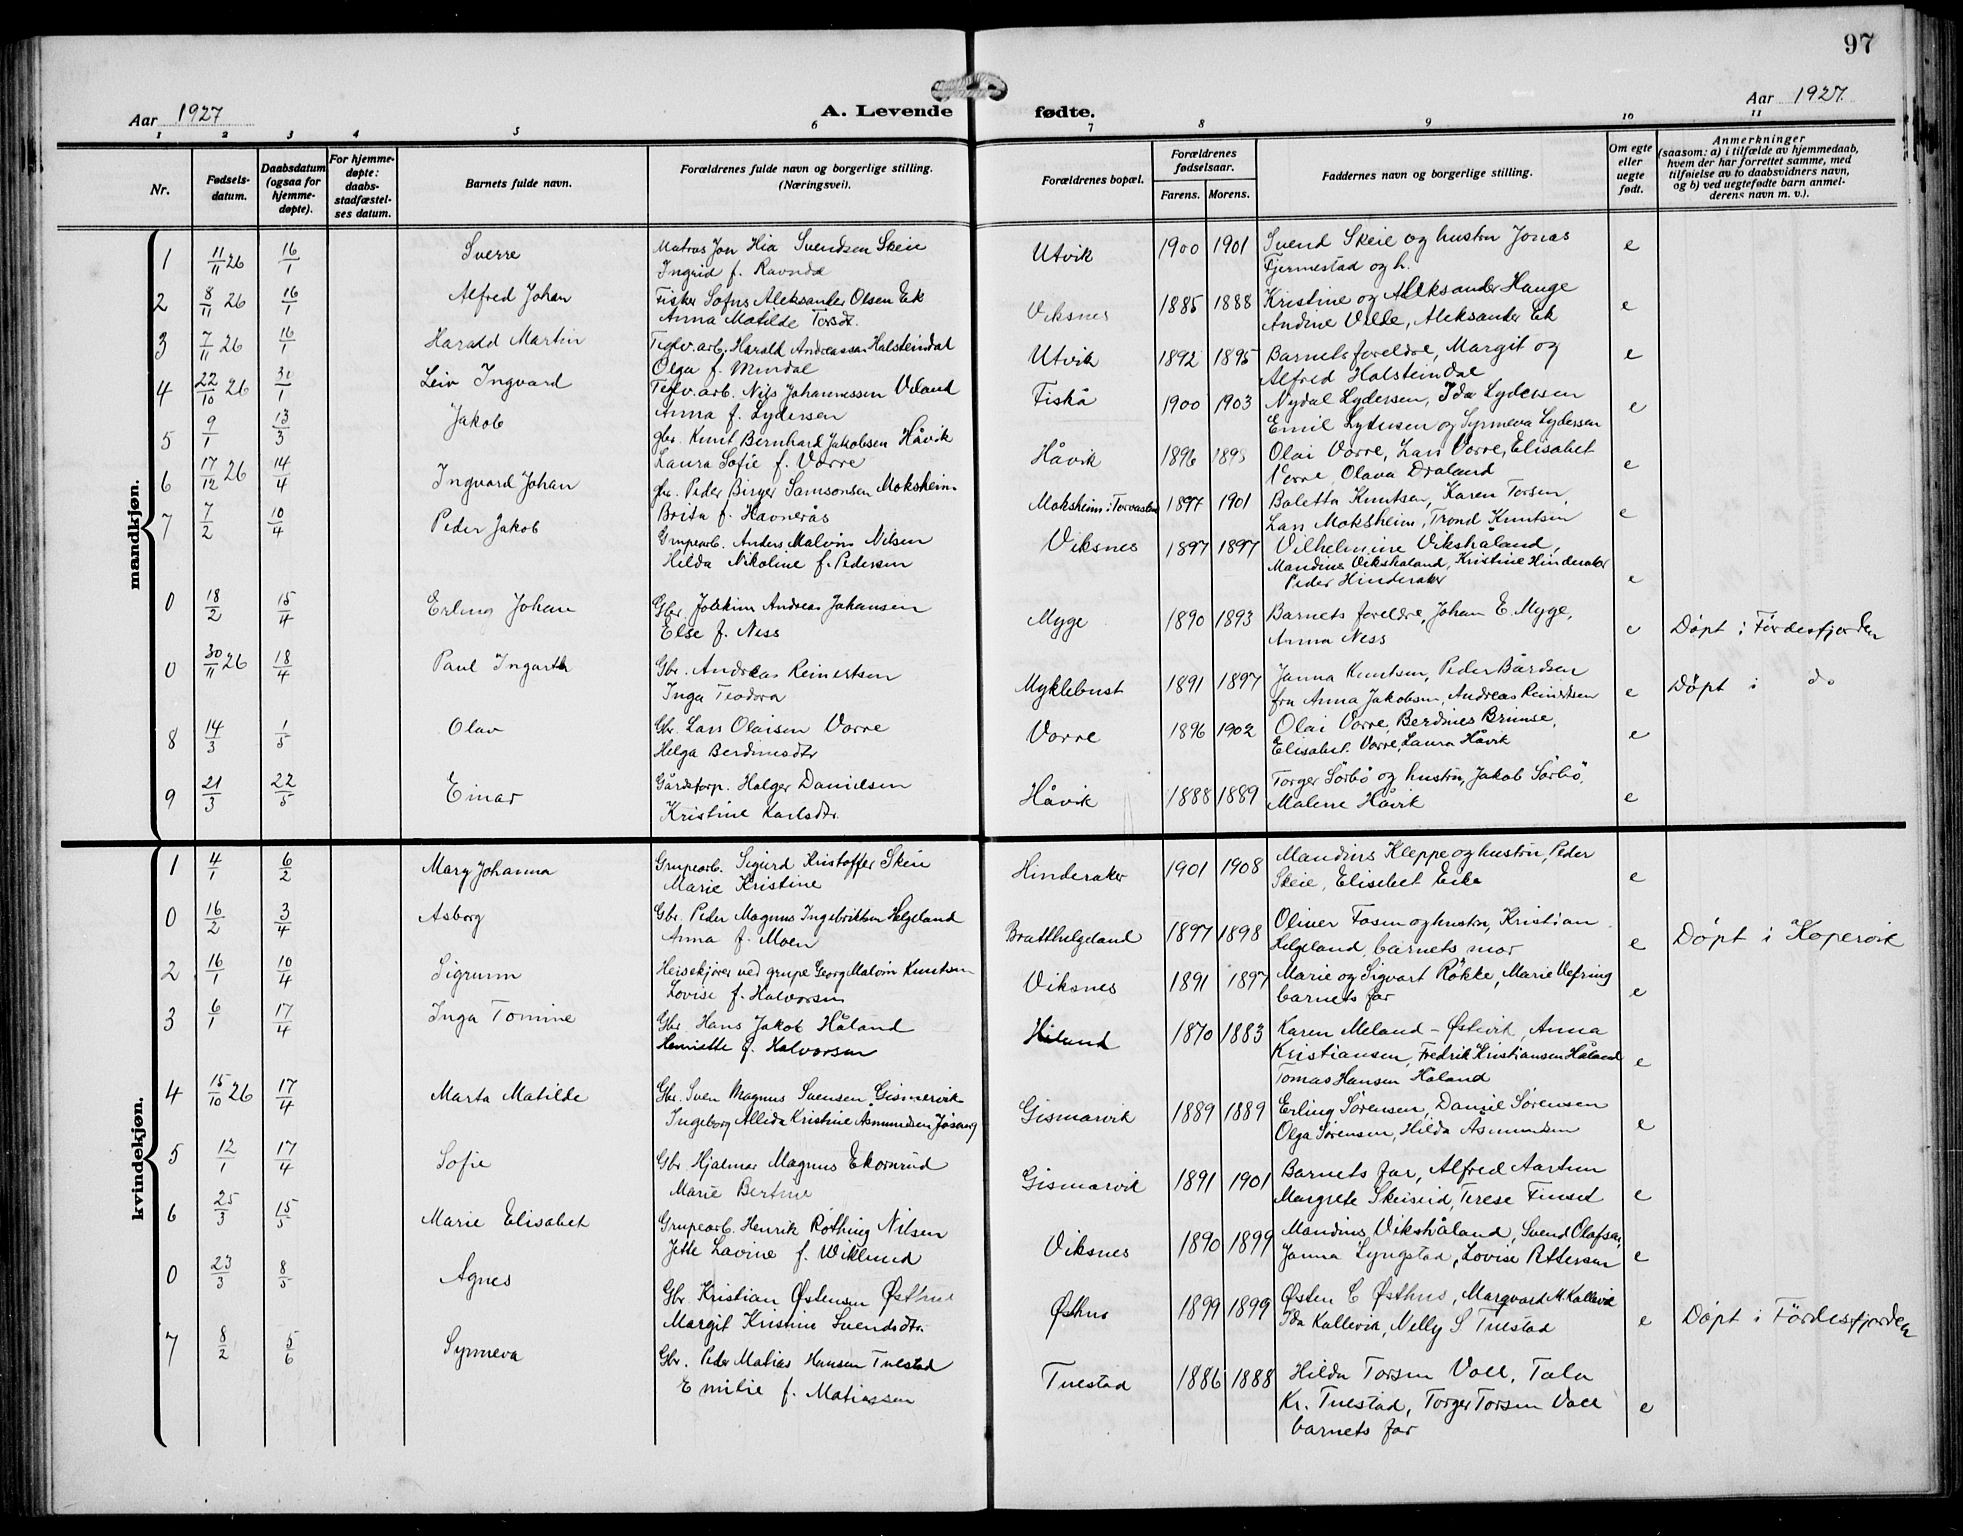 97
Aar 1927
A. Levende fødte.
Aar 1927.
1 2 3 4 5 6 7 8 9 10 11
Nr.
Fødsels-
datum.
Daabsdatum
(ogsaa for
hjemme-
døpte).
For hjemme-
døpte:
daabs-
stadfæstel-
ses datum.
Barnets fulde navn.
Forældrenes fulde navn og borgerlige stilling.
(Næringsvei).
Forældrenes bopæl.
Forældrenes
fødselsaar.
Farens. Morens.
Faddernes navn og borgerlige stilling.
Om egte
eller
uegte
født.
Anmerkninger
(saasom: a) i tilfælde av hjemmedaab,
hvem der har forrettet samme, med
tilføielse av to daabsvidners navn,
og b) ved uegtefødte barn anmel-
derens navn m. v.).
mandkjøn.
1 11/11 26 16/1 Sverre Matros Jon Hia Svendsen Skeie Utvik 1900 1901 Svend Skeie og hustru Jonas e
Ingrid f. Ravndal Fjermestad og h.
2 8/11 26 16/1 Alfred Johan Fisker Sofus Aleksander Olsen Ek Viksnes 1885 1888 Kristine og Aleksander Hauge e
Anna Matilde Torsdt. Andine Vilde, Aleksander Ek
3 7/11 26 16/1 Harald Martin Teglv.arb. Harald Andreassen Halsteindal Utvik 1892 1895 Barnets foreldre, Margit og e
Olga f. Mindal Alfred Halsteindal
4 22/10 26 31/1 Leiv Ingvard Teglv.arb. Nils Johannessen Veland Fiskå 1900 1903 Nydal Lydersen, Ida Lydersen e
Anna f. Lydersen Emil Lydersen og Synneva Lydersen
5 9/1 13/3 Jakob gbr. Knut Bernhard Jakobsen Håvik Håvik 1896 1895 Olai Vorre, Lars Vorre, Elisabet e
Laura Sofie f. Vorre Vorre, Olava Draland
6 17/12 26 14/4 Ingvard Johan gbr. Peder Birger Samsonsen Moksheim Moksheim i Torvastad 1897 1901 Baletta Knutsen, Karen Torsen, e
Brita f. Havnerås Lars Moksheim, Trond Knutsen
7 7/2 10/4 Peder Jakob Grupearb. Anders Malvin Nilsen Viksnes 1897 1897 Vilhelmine Vikshåland, e
Hilda Nikoline f. Pedersen Mandius Vikshaland, Kristine Hinderaker
Peder Hinderaker
0 18/2 15/4 Erling Johan Gbr. Joakim Andreas Johansen Myge 1890 1893 Barnets foreldre, Johan E. Myge, e Döpt i Fördesfjorden
Else f. Ness Anna Ness
0 30/11 26 18/4 Paul Ingarth Gbr. Andreas Reinertsen Myklebust 1891 1897 Janna Knutsen, Peder Bårdsen e Döpt i do
Inga Teodora fru Anna Jakobsen, Andreas Reinertsen
8 14/3 1/5 Olav Gbr. Lars Olaisen Vorre Vorre 1896 1902 Olai Vorre, Berdines Brimse, e
Helga Berdinesdtr Elisabet Vorre, Laura Håvik
9 21/3 22/5 Einar Gårdsforp. Holger Danielsen Håvik 1888 1889 Torger Sörbö og hustru, Jakob Sörbö, e
Kristine Karlsdtr. Malene Håvik
kvindekjøn.
1 4/1 6/2 Mary Johanna Grupearb. Sigurd Kristoffer Skeie Hinderaker 1901 1908 Mandius Kleppe og hustru, Peder e
Marie Kristine Skeie, Elisebet Eike
0 16/2 3/4 Asborg Gbr. Peder Magnus Ingebriktsen Helgeland Bratthelgeland 1897 1898 Oliver Fosen og hustru, Kristian e Döpt i Kopervik
Anna f. Moen Helgeland, barnets mor
2 16/1 10/4 Sigrunn Heisekjører ved grupe Georg Malvin Knutsen Viksnes 1891 1897 Marie og Sigvart Rökke, Marie Vefring e
Lovise f. Halvorsen barnets far
3 6/1 17/4 Inga Tomine Gbr. Hans Jakob Håland Håland 1870 1883 Karen Meland - Østvik, Anna e
Henriette f. Halvorsen Kristiansen, Fredrik Kristiansen Håland
Tomas Hansen Håland
4 15/10 26 17/4 Marta Matilde Gbr. Sven Magnus Svensen Gismervik Gismarvik 1889 1889 Erling Sørensen, Daniel Sørensen e
Ingeborg Allida Kristine Asmundsen Jösang Olga Sørensen, Hilda Asmundsen
5 12/1 17/4 Sofie Gbr. Hjalmar Magnus Ekornrud Gismarvik 1891 1901 Barnets far, Alfred Aartun e
Marie Bertine Margrete Skeiseid, Terese Finset
6 25/3 15/5 Marie Elisabet Grupearb. Henrik Röthing Nilsen Viksnes 1890 1899 Mandius Vikshåland, Svend Olafsen, e
Jette Lavine f. Wiklund Janna Lyngstad, Lovise Pettersen
0 23/3 8/5 Agnes Gbr. Kristian Østensen Østhus Østhus 1899 1899 Østen C Østhus, Margvard M. Kallevik e Döpt i Fördesfjorden
Margit Kristine Svendsdtr. Ida Kallevik, Nelly S Tuestad
7 8/2 5/6 Synneva Gbr. Peder Matias Hansen Tuestad Tuestad 1886 1888 Hilda Torsen Voll, Tala e
Emilie f. Matiassen Kr. Tuestad, Torger Torsen Voll
barnets far